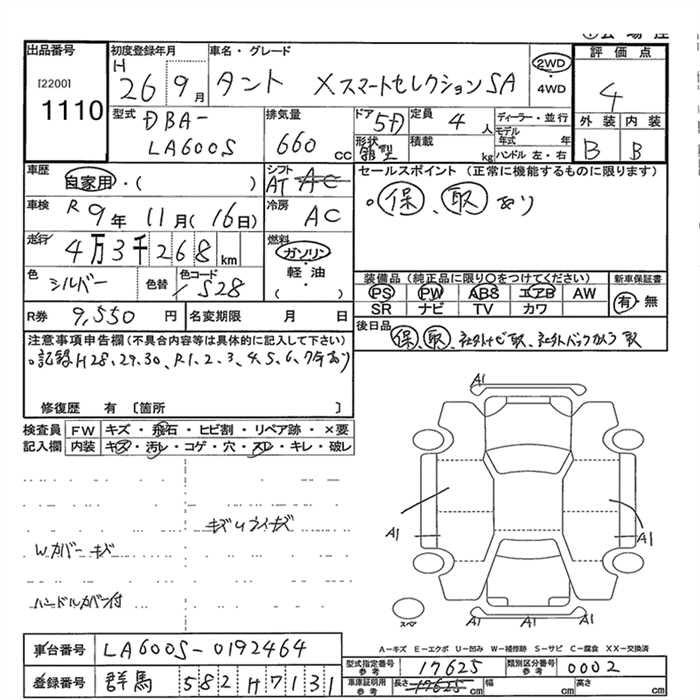 出品番号
[2200]
1110
初度登録年月
H 26 9月
車名・グレード
タント Xスマートセレクション SA
2WD
・
4WD
評価点
4
外装 内装
B B
型式
DBA-
LA600S
排気量
660 cc
ドア 5D
形状 箱型
定員 4 人
積載 kg
ディーラー・並行
モデル年式 年
ハンドル 左・右
車歴
自家用・( )
シフト
AT AC
車検
R 9年 11月(16日)
冷房
AC
走行
4万3千268km
燃料
ガソリン・
軽油・
( )
色
シルバー
色替
色コード
S28
R券 9,550 円
名変期限 月 日
セールスポイント(正常に機能するものに限ります)
。保、取あり
装備品(純正品に限り○をつけてください)
PS PW ABS エアB AW
SR ナビ TV カワ
新車保証書
有・無
後日品
保、取、社外ナビ取、社外バックカメラ取
注意事項申告欄(不具合内容等は具体的に記入して下さい)
。記録H28,29,30,R1,2,3,4,5,6,7年あり
修復歴 有 〔箇所 〕
検査員 FW キズ・飛石・ヒビ割・リペア跡・×要
記入欄 内装 キズ・汚レ・コゲ・穴・スレ・キレ・破レ
キズ
Wカバーキズ
ハンドルカバー付
A1
A1
A1
A1
A1
A1
A1
A-キズ E-エクボ U-凹み W-補修跡 S-サビ C-腐食 XX-交換済
車台番号 LA600S-0192464
登録番号 群馬 582 H 7131
型式指定番号 参考 17625
類別区分番号 参考 0002
車庫証明用 参考 長さ 17625 cm 幅 cm 高さ cm